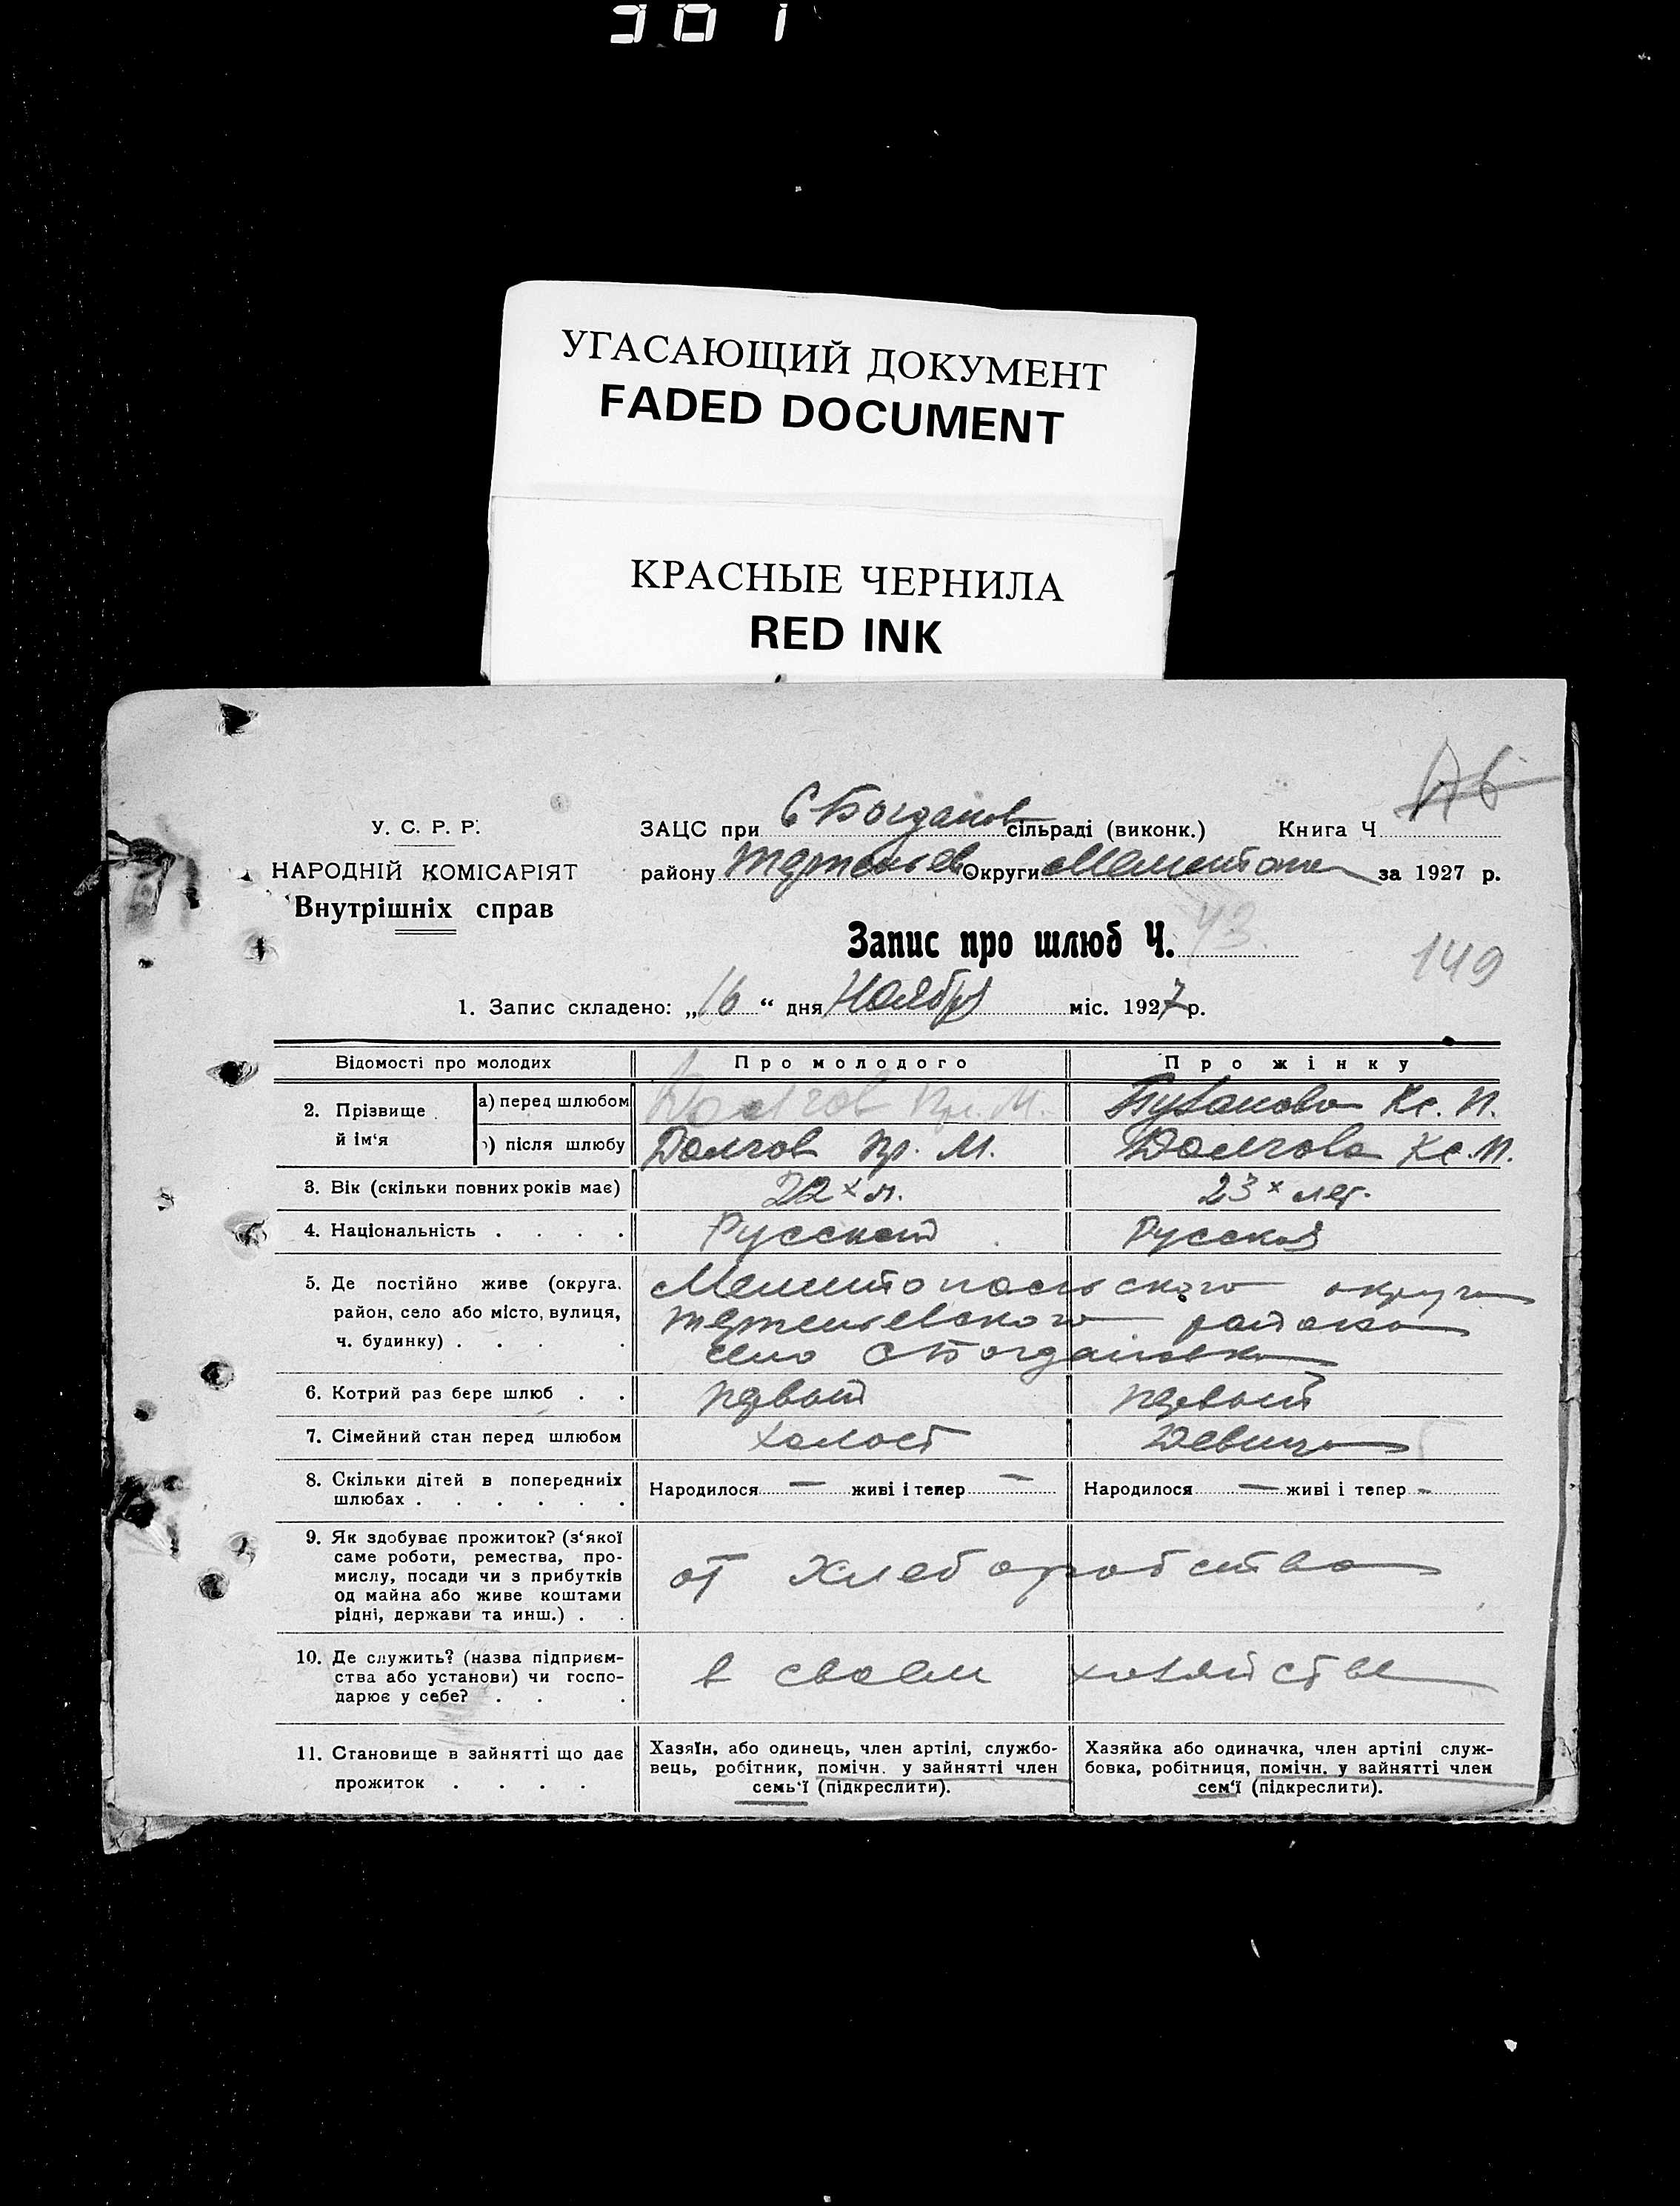 УГАСАЮЩИЙ ДОКУМЕНТ
FADED DOCUMENT
КРАСНЫЕ ЧЕРНИЛА
RED INK
У. С. Р. Р.
НАРОДНІЙ КОМІСАРІЯТ
Внутрішніх справ
ЗАЦС при С-Богданов сільраді (виконк.) Книга Ч
району Терпеньев Округи Мелитопол за 1927 р.
Запис про шлюб Ч. 43.
149
1. Запис складено: „16“ дня Ноября міс. 1927 р.
Відомості про молодих
Про молодого
Про жінку
2. Прізвище й ім‘я
а) перед шлюбом
Долгов Пр. М.
Кс. П.
б) після шлюбу
Долгов Пр. М.
Долгова Кс. П.
3. Вік (скільки повних років має)
22х л.
23х лет.
4. Національність . . . .
Русский
Русская
5. Де постійно живе (округа,
район, село або місто, вулиця,
ч. будинку) . . . .
Мелитопольского округа
Терпеньевского района
село С Богдановка
6. Котрий раз бере шлюб . .
первый
первый
7. Сімейний стан перед шлюбом
Холост
Девица
8. Скільки дітей в попередніх
шлюбах . . . . . .
Народилося — живі і тепер —
Народилося — живі і тепер -
9. Як здобуває прожиток? (з‘якої
саме роботи, ремества, про-
мислу, посади чи з прибутків
од майна або живе коштами
рідні, держави та инш.) . .
от Хлеборобства
10. Де служить? (назва підприєм-
ства або установи) чи госпо-
дарює у себе? . . .
в своем хозяйстве
11. Становище в зайнятті що дає
прожиток . . . .
Хазяїн, або одинець, член артілі, службо-
вець, робітник, помічн. у зайнятті член
семь‘ї (підкреслити).
Хазяйка або одиначка, член артілі служ-
бовка, робітниця, помічн. у зайнятті член
сем‘ї (підкреслити).